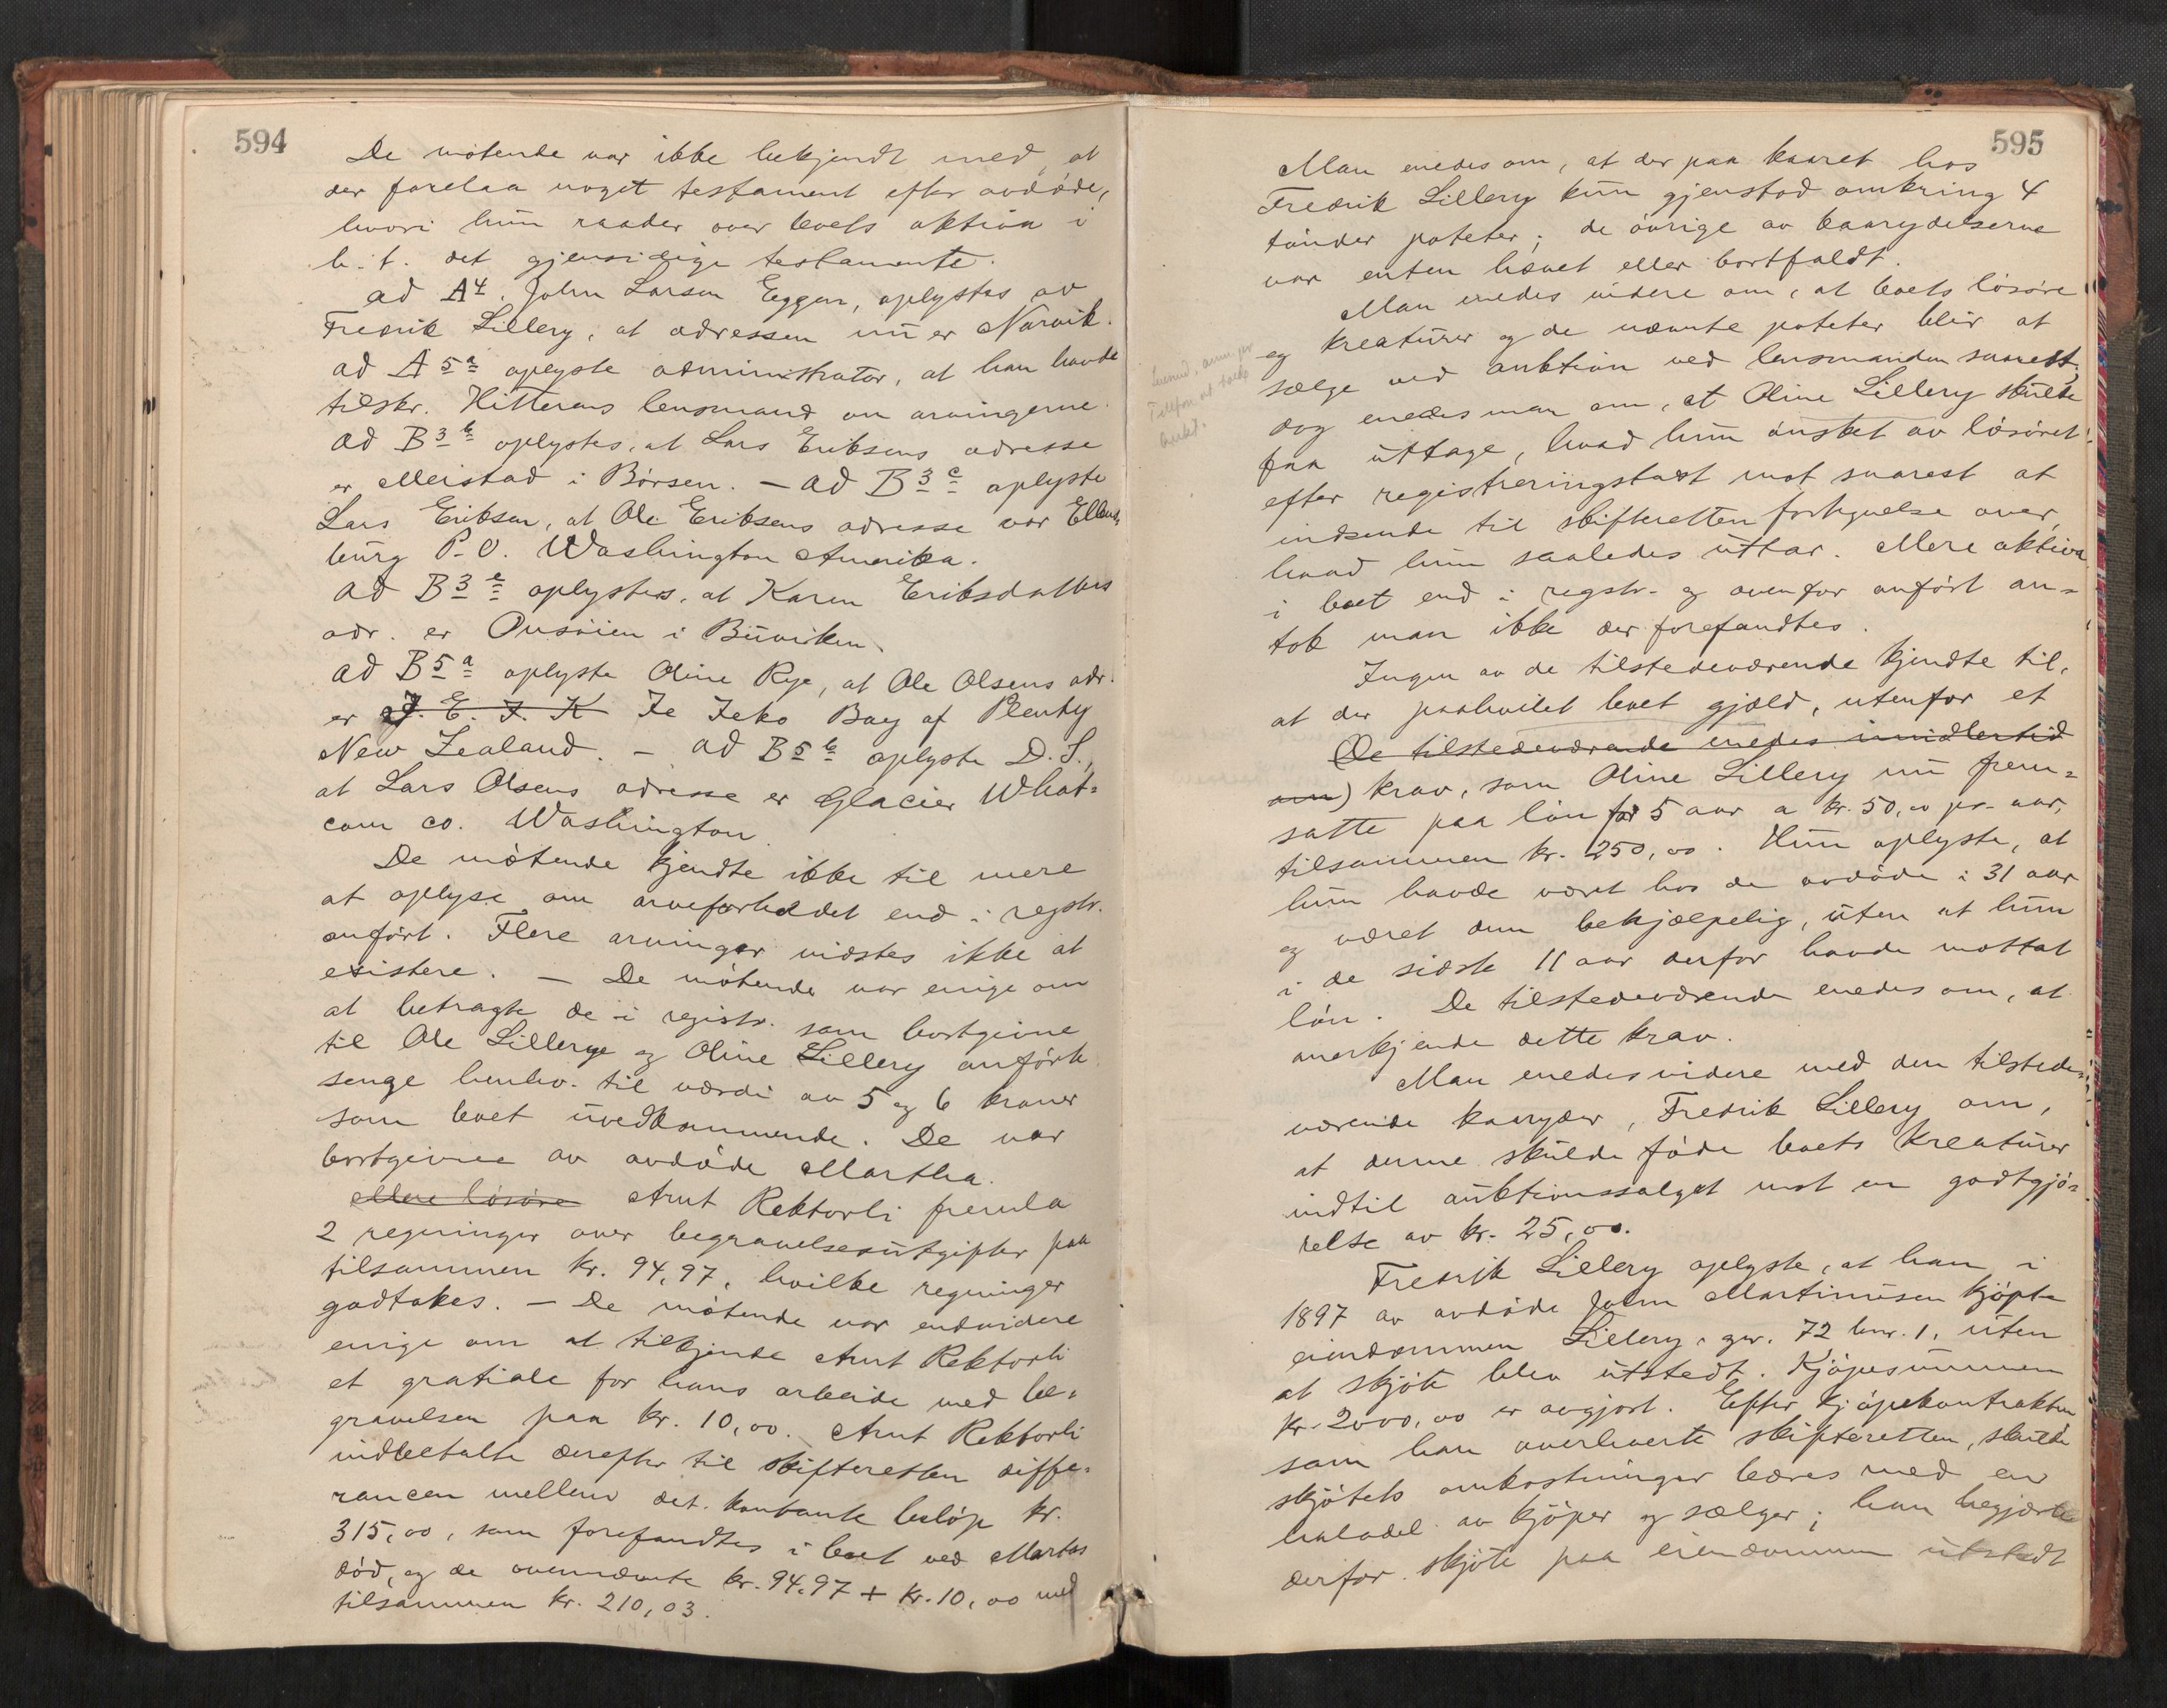 594
De møtende var ikke bekjendt med, at
der forelaa noget testament efter avdøde,
hvori hun raader over boets aktiva i
h. t. det gjensidige testamente.
ad A 4. John Larsen Eggen, oplystes av
Fredrik Lillery, at adressen nu er Narvik.
ad A 5 a oplyste administrator, at han havde
tilskr. Hitterens lensmand om arvingerne.
ad B 3 b oplystes, at Lars Eriksens adresse
er Meistad i Børsen. — ad B 3 c oplyste
Lars Eriksen, at Ole Eriksens adresse var Ellens,
burg P. O. Washington Amerika.
ad B 3 e oplystes, at Karen Eriksdatters
adr. er Onsøien i Buviken.
ad B 5 a oplyste Oline Rye, at Ole Olsens adr.
er J. E. J. K Te Teko Bay of Plenty
New Zealand. — ad B 5 b oplyste D. S.,
at Lars Olsens adresse er Glacier What-
com co. Washington
De møtende kjendte ikke til mere
at oplyse om arveforholdet end i regstr.
anført. Flere arvinger vidstes ikke at
existere. — De møtende var enige om
at betragte de i registr. som bortgivne
til Ole Lillerye og Oline Lillery anførte
senge henhv. til værdi av 5 og 6 kroner
som boet uvedkommende. De var
bortgivne av avdøde Martha.
Mere løsøre Arnt Rektorli fremla
2 regninger over begravelsesutgifter paa
tilsammen kr. 94,97, hvilke regninger
godtokes. — De møtende var endvidere
enige om at tilkjende Arnt Rektorli
et gratiale for hans arbeide med be-
gravelsen paa kr. 10,00. Arnt Rektorli
indbetalte derefter til skifteretten diffe-
rancen mellem det kontante beløp kr.
315,00, som forefandtes i boet ved Martas
død, og de ovennævnte kr. 94,97 + kr. 10,00 med
tilsammen kr. 210,03.
595
Man enedes om, at der paa kaaret hos
Fredrik Lillery kun gjenstod omkring 4
tønder poteter; de øvrige av kaarydelserne
var enten hævet eller bortfaldt.
Man enedes videre om, at boets løsøre
og kreaturer og de nævnte poteter blir at
sælge ved auktion ved lensmanden snarest,
dog enedes man om, at Oline Lillery skulde
faa uttage, hvad hun ønsket av løsøret
efter registreringstakst mot snarest at
indsende til skifteretten fortegnelse over,
hvad hun saaledes uttar. Mere aktiva
i boet end i regstr. og ovenfor anført an-
tok man ikke der forefandtes.
Ingen av de tilstedeværende kjendte til,
at der paahvilet boet gjæld, utenfor et
(De tilstedeværende enedes imidlertid
om) krav, som Oline Lillery nu frem-
satte paa løn for 5 aar a kr. 50,00 pr. aar,
tilsammen kr. 250,00. Hun oplyste, at
hun havde været hos de avdøde i 31 aar
og været dem behjælpelig, uten at hun
i de sidste 11 aar derfor havde mottat
løn. De tilstedeværende enedes om, at
anerkjende dette krav.
Man enedes videre med den tilstede-
værende kaaryder, Fredrik Lillery om,
at denne skulde føde boets kreaturer
indtil auktionssalget mot en godtgjø-
relse av kr. 25,00.
Fredrik Lillery oplyste, at han i
1897 av avdøde John Martinusen kjøpte
eiendommen Lillery, gnr. 72 bnr. 1, uten
at skjøte blev utstedt. Kjøpesummen
kr. 2000,00 er avgjort. Efter kjøpekontrakten
som han overleverte skifteretten, skulde
skjøtets omkostninger bæres med en
halvdel av kjøper og sælger; han begjærte
derfor skjøte paa eiendommen utstedt